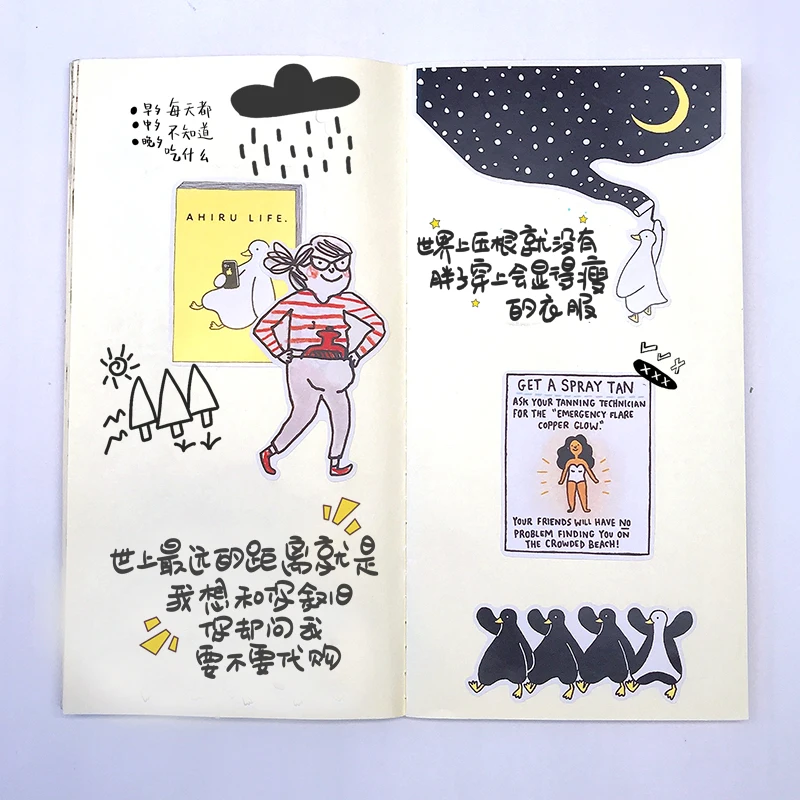 •早多 每天都
•中多 不知道
•晚夕 吃什么
AHIRU LIFE.
世上最远的距离就是
我想和你叙旧
你却问我
要不要代购
世界上压根就没有
胖子穿上会显得瘦
的衣服
XXX
GET A SPRAY TAN
ASK YOUR TANNING TECHNICIAN
FOR THE "EMERGENCY FLARE
COPPER GLOW."
YOUR FRIENDS WILL HAVE NO
PROBLEM FINDING YOU ON
THE CROWDED BEACH!